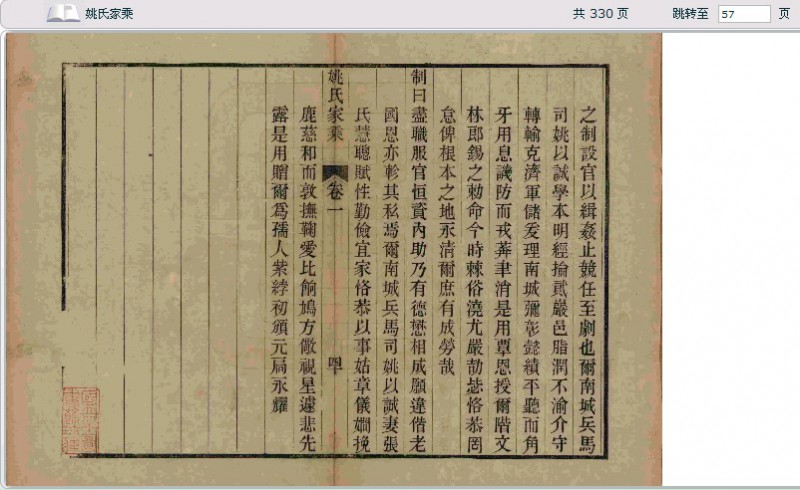 姚氏家乘
共 330 页
跳转至 57 页
之制設官以緝姦止競任至劇也爾南城兵馬
司姚以誠學本明經掄貳嚴邑脂潤不渝介守
轉輸克濟軍儲爰理南城彌彰懿績平聽而角
牙用息譏防而戎莽聿消是用覃恩授爾階文
林郎錫之勑命今時棘俗澆尤嚴劼毖恪恭罔
怠俾根本之地永清爾庶有成勞哉
制曰盡職服官恒資內助乃有德懋相成願違偕老
國恩亦軫其私焉爾南城兵馬司姚以誠妻張
氏慧聰賦性勤儉宜家恪恭以事姑章儀嫻挽
姚氏家乘
卷一
鹿慈和而敦撫鞠愛比餉鳩方儆視星遽悲先
露是用贈爾爲孺人紫綍初頒元扃永耀